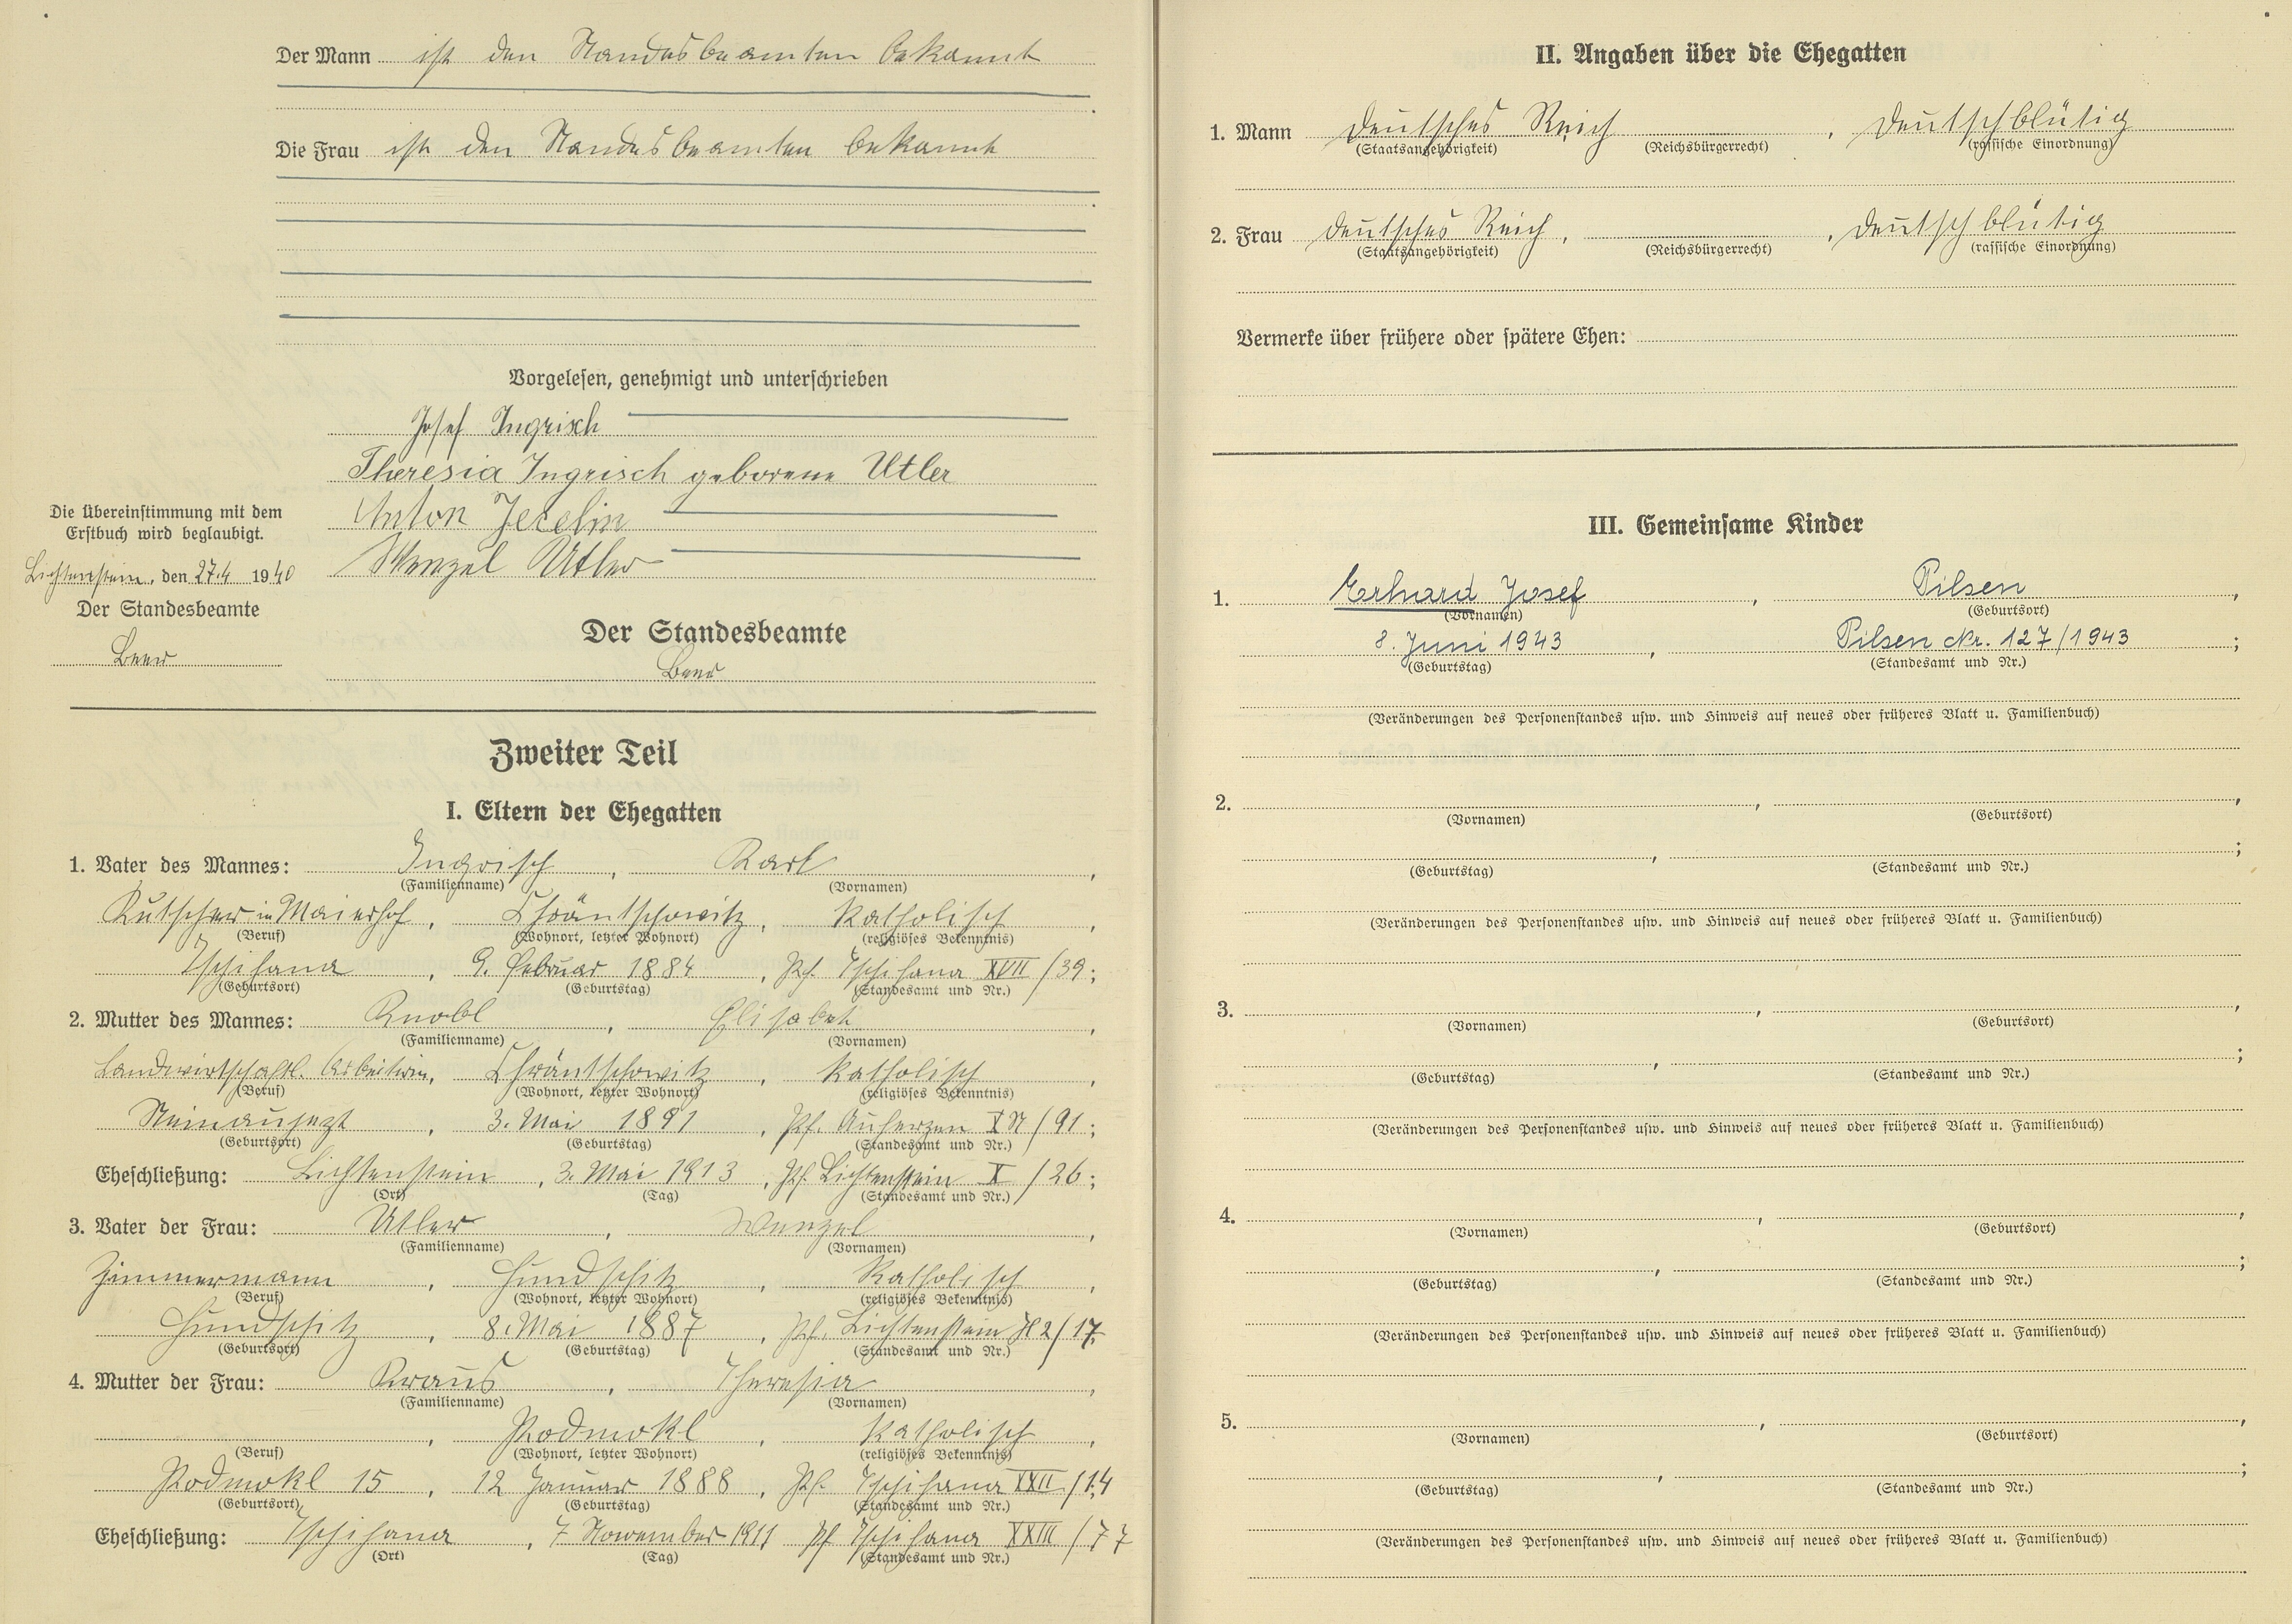 Der Mann ist den Standesbeamten bekannt
Die Frau ist den Standesbeamten bekannt
Vorgelesen, genehmigt und unterschrieben
Josef Ingrisch
Theresia Ingrisch geborene Utler
Anton Jecelin
Wenzel Utler
Die Übereinstimmung mit dem
Erstbuch wird beglaubigt.
Lichtenstein, den 27.4 1940
Der Standesbeamte
Beer
Der Standesbeamte
Beer
Zweiter Teil
I. Eltern der Ehegatten
1. Vater des Mannes: Ingrisch, Karl,
(Familienname) (Vornamen)
Kutscher in Maierhof, Chrântschowitz, katholisch,
(Beruf) (Wohnort, letzter Wohnort) (religiöses Bekenntnis)
Tschihana, 9. Februar 1884, Pf. Tschihana XVII /39;
(Geburtsort) (Geburtstag) (Standesamt und Nr.)
2. Mutter des Mannes: Knobl, Elisabet,
(Familienname) (Vornamen)
Landwirtschaftl. Arbeiterin, Chrântschowitz, katholisch,
(Beruf) (Wohnort, letzter Wohnort) (religiöses Bekenntnis)
Steinaujezt, 3. Mai 1891, Pf. Auherzen /91;
(Geburtsort) (Geburtstag) (Standesamt und Nr.)
Eheschließung: Lichtenstein, 3. Mai 1913, Pf. Lichtenstein X /26;
(Ort) (Tag) (Standesamt und Nr.)
3. Vater der Frau: Utler, Wenzel,
(Familienname) (Vornamen)
Zimmermann, Hundschitz, katholisch,
(Beruf) (Wohnort, letzter Wohnort) (religiöses Bekenntnis)
Hundschitz, 8. Mai 1887, Pf. Lichtenstein H2/17;
(Geburtsort) (Geburtstag) (Standesamt und Nr.)
4. Mutter der Frau: Kraus, Theresia,
(Familienname) (Vornamen)
, Podmokl, katholisch,
(Beruf) (Wohnort, letzter Wohnort) (religiöses Bekenntnis)
Podmokl 15, 12 Januar 1888, Pf. Tschihana XXII /14
(Geburtsort) (Geburtstag) (Standesamt und Nr.)
Eheschließung: Tschihana, 7 November 1911 Pf Tschihana XXIII /77
(Ort) (Tag) (Standesamt und Nr.)
II. Angaben über die Ehegatten
1. Mann Deutsches Reich , Deutschblütig
(Staatsangehörigkeit) (Reichsbürgerrecht) (rassische Einordnung)
2. Frau Deutsches Reich, , Deutschblütig
(Staatsangehörigkeit) (Reichsbürgerrecht) (rassische Einordnung)
Vermerke über frühere oder spätere Ehen:
III. Gemeinsame Kinder
1. Erhard Josef, Pilsen,
(Vornamen) (Geburtsort)
8. Juni 1943, Pilsen Nr. 127/1943;
(Geburtstag) (Standesamt und Nr.)
(Veränderungen des Personenstandes usw. und Hinweis auf neues oder früheres Blatt u. Familienbuch)
2. , ,
(Vornamen) (Geburtsort)
, ;
(Geburtstag) (Standesamt und Nr.)
(Veränderungen des Personenstandes usw. und Hinweis auf neues oder früheres Blatt u. Familienbuch)
3. , ,
(Vornamen) (Geburtsort)
, ;
(Geburtstag) (Standesamt und Nr.)
(Veränderungen des Personenstandes usw. und Hinweis auf neues oder früheres Blatt u. Familienbuch)
4. , ,
(Vornamen) (Geburtsort)
, ;
(Geburtstag) (Standesamt und Nr.)
(Veränderungen des Personenstandes usw. und Hinweis auf neues oder früheres Blatt u. Familienbuch)
5. , ,
(Vornamen) (Geburtsort)
, ;
(Geburtstag) (Standesamt und Nr.)
(Veränderungen des Personenstandes usw. und Hinweis auf neues oder früheres Blatt u. Familienbuch)